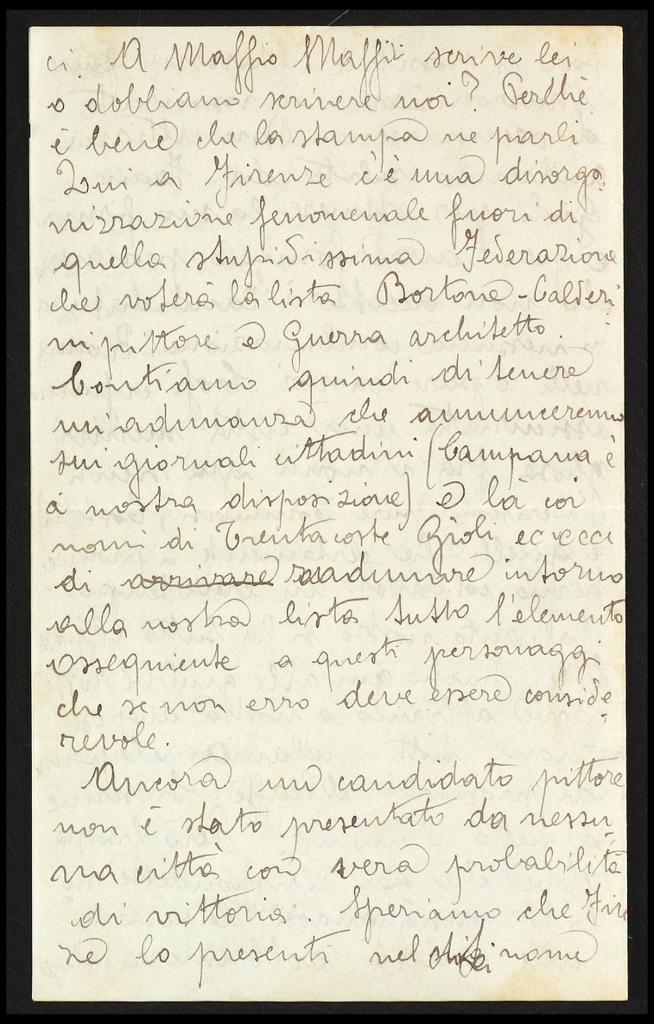 ci. A Maffio Maffii scrive lei
o dobbiamo scrivere noi? Perchè
è bene che la stampa ne parli
Qui a Firenze c'è una disorga
nizzazione fenomenale fuori di
quella stupidissima Federazione
che voterà la lista Bortone-Calderi
ni pittore e Guerra architetto.
Contiamo quindi di tenere
un'adunanza che annunceremo
sui giornali cittadini (Campana è
a nostra disposizione) e là coi
nomi di Trentacoste Gioli ecccci
di arrivare radunare intorno
alla nostra lista tutto l'elemento
ossequiente a questi personaggi
che se non erro deve essere conside
revole.
Ancora un candidato pittore
non è stato presentato da nessu
na città con vera probabilità
di vittoria. Speriamo che Fire
ze lo presenti nel nome